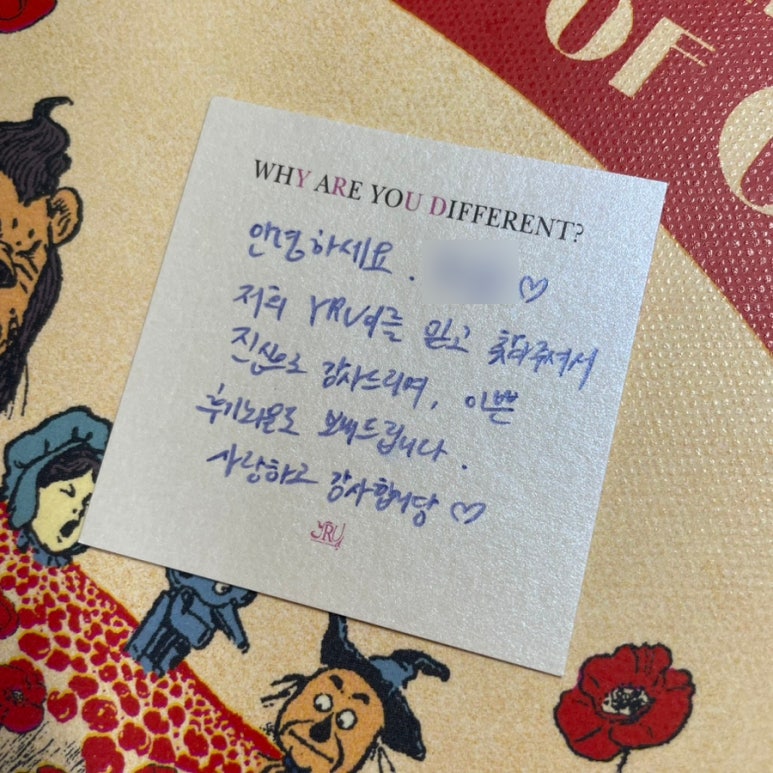 OF
WHY ARE YOU DIFFERENT?
안녕하세요. ♡
저희 YRU이를 믿고 찾아주셔서
진심으로 감사드리며, 이쁜
후기 보내드립니다.
사랑하고 감사합니당 ♡
YRU